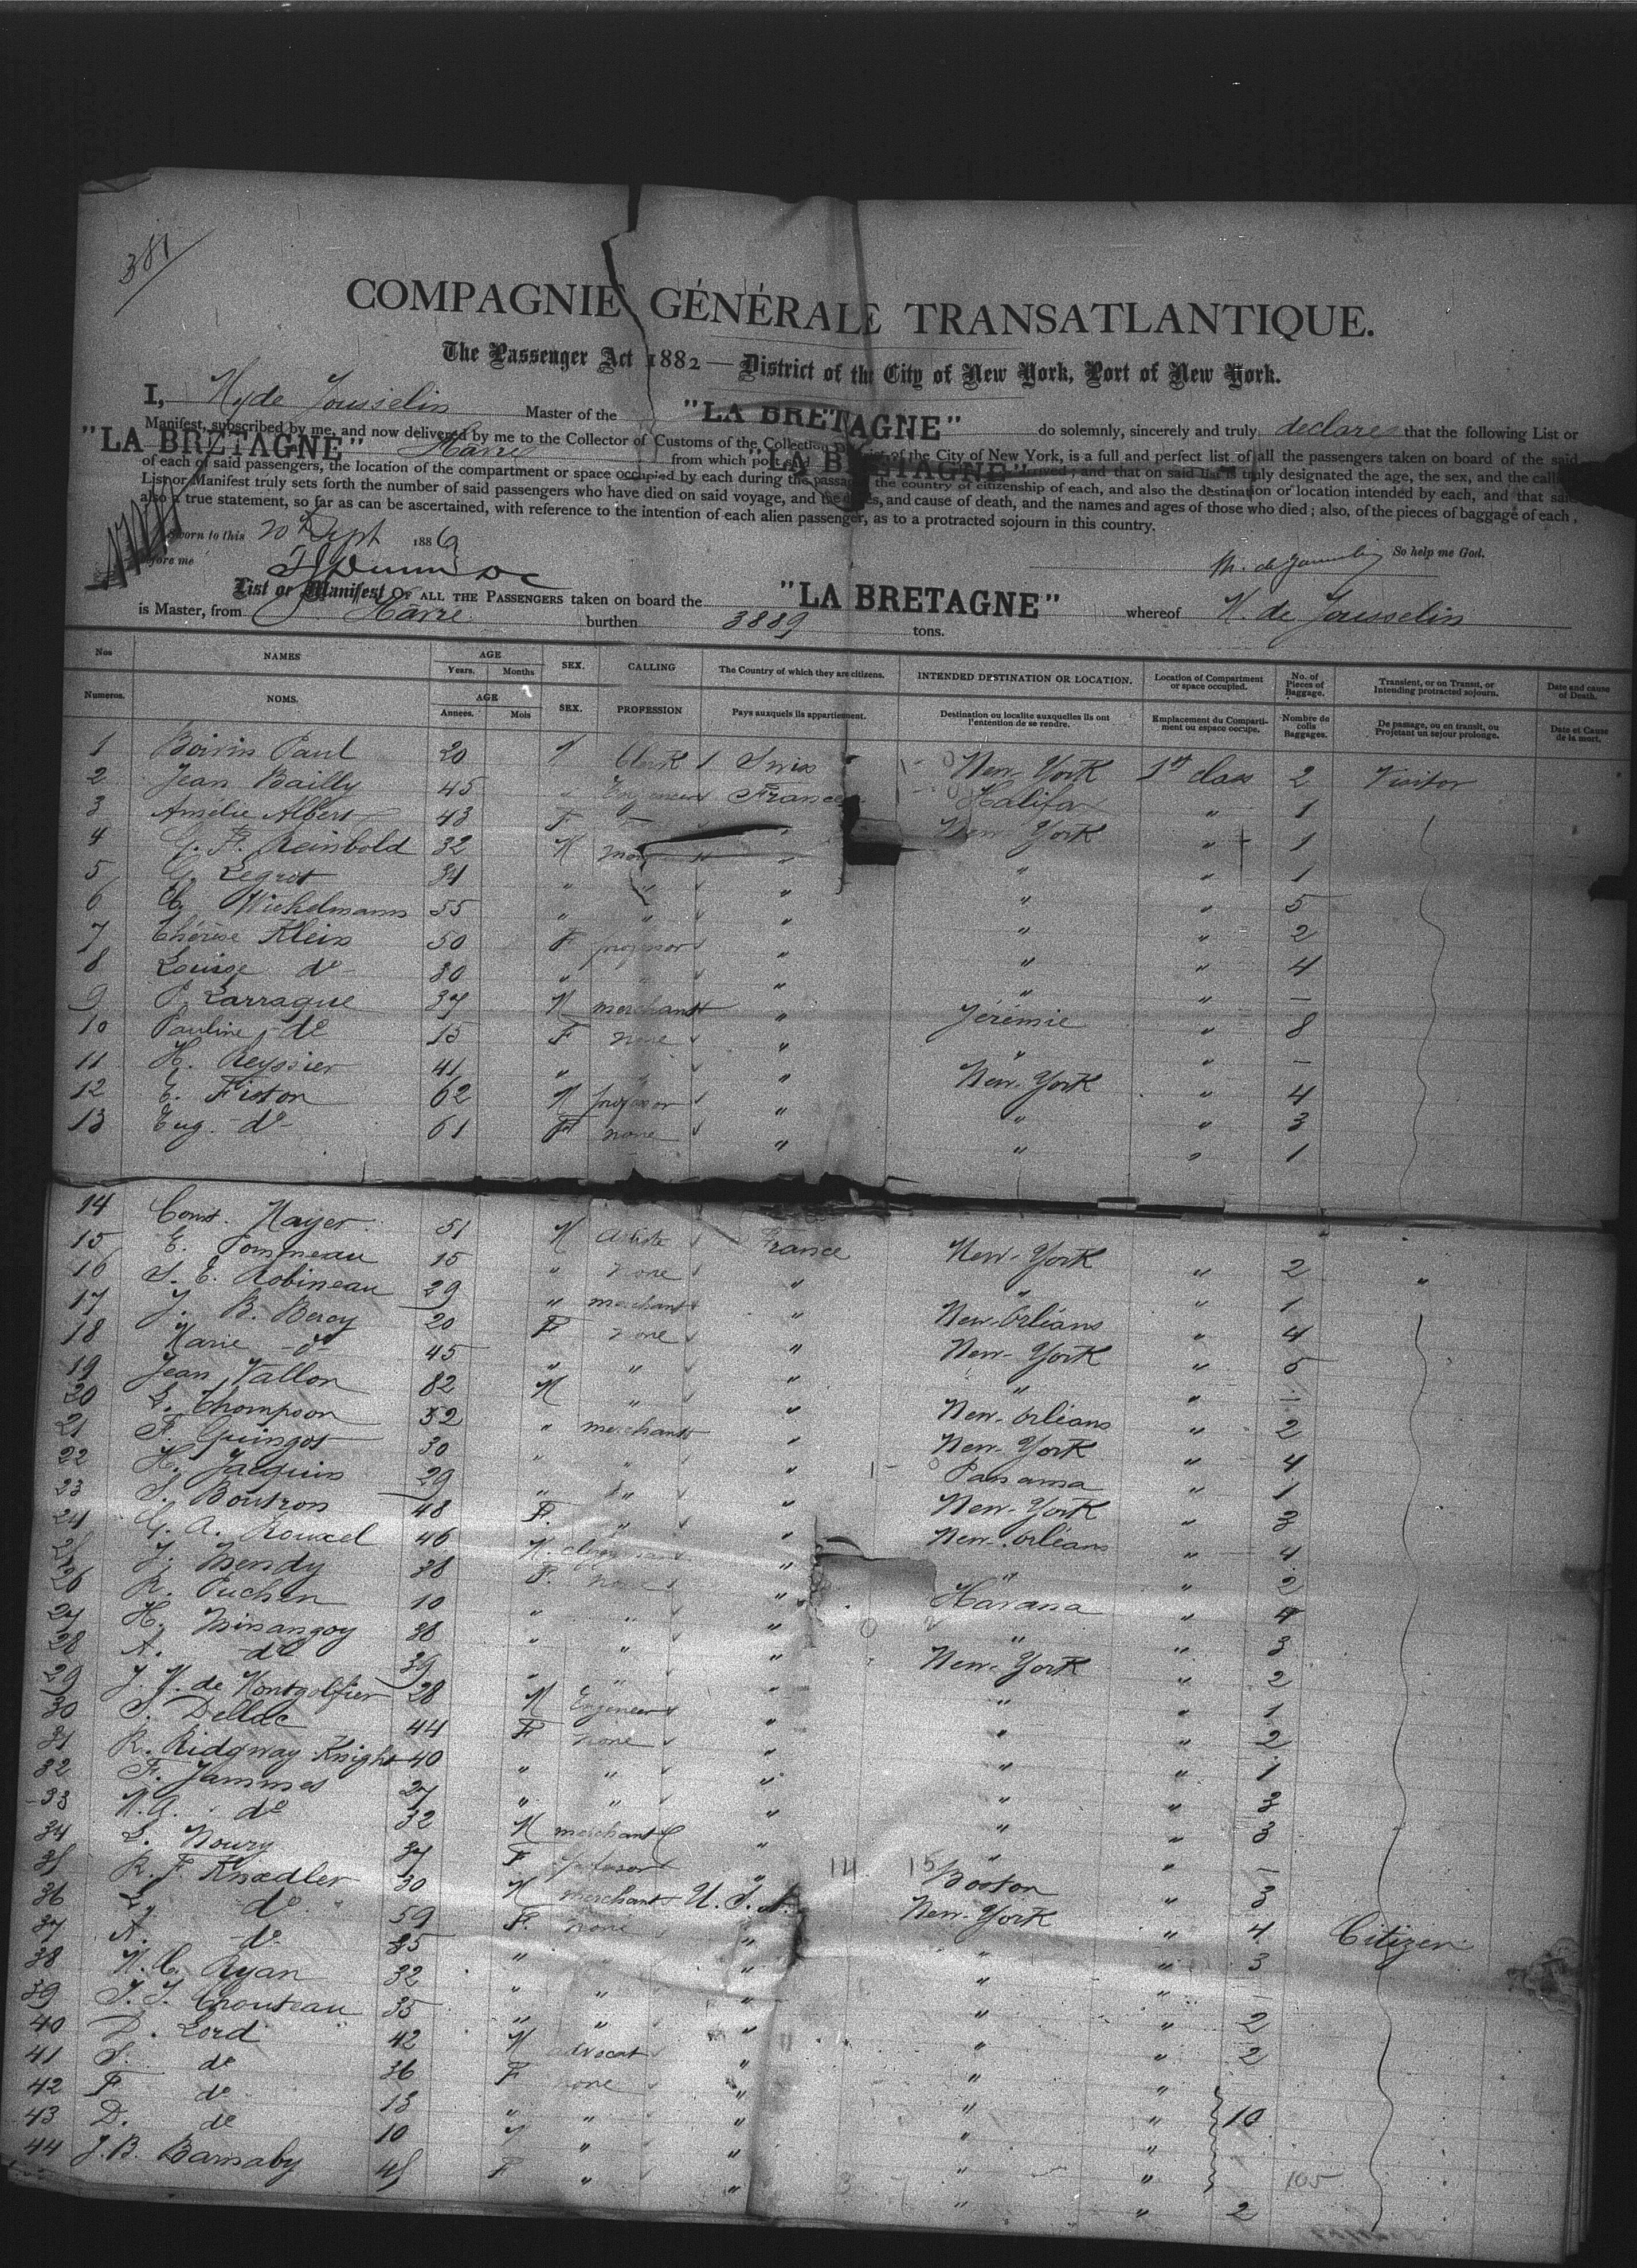 381
COMPAGNIE GÉNÉRALE TRANSATLANTIQUE.
The Passenger Act 1882 — District of the City of New York, Port of New York.
I, de Jousselin Master of the "LA BRETAGNE" do solemnly, sincerely and truly declare that the following List or
Manifest, subscribed by me, and now delivered by me to the Collector of Customs of the Collection District of the City of New York, is a full and perfect list of all the passengers taken on board of the said
"LA BRETAGNE" Havre from which port said "LA BRETAGNE" arrived; and that on said list is truly designated the age, the sex, and the calling
of each of said passengers, the location of the compartment or space occupied by each during the passage, the country of citizenship of each, and also the destination or location intended by each, and that said
List or Manifest truly sets forth the number of said passengers who have died on said voyage, and the dates, and cause of death, and the names and ages of those who died; also, of the pieces of baggage of each,
also a true statement, so far as can be ascertained, with reference to the intention of each alien passenger, as to a protracted sojourn in this country.
Sworn to this 20 Sept 1886
before me So help me God.
List or Manifest OF ALL THE PASSENGERS taken on board the "LA BRETAGNE" whereof H. de Jousselin
is Master, from Havre burthen 3889 tons.
Nos NAMES AGE Years. Months SEX. CALLING The Country of which they are citizens. INTENDED DESTINATION OR LOCATION. Location of Compartment or space occupied. No. of Pieces of Baggage. Transient, or on Transit, or Intending protracted sojourn. Date and cause of Death.
Numeros. NOMS. AGE Annees. Mois SEX. PROFESSION Pays auxquels ils appartiennent. Destination ou localite auxquelles ils ont l'entention de se rendre. Emplacement du Comparti-ment ou espace occupe. Nombre de colis Baggages. De passage, ou en transit, ou Projetant un sejour prolonge. Date et Cause de la mort.
1 Boivin Paul 20 M Clerk Swiss New-York 1st class 2 Visitor
2 Jean Bailly 45 " Engineer France Halifax " 1
3 Amélie Albert 43 F " New York " 1
4 G. F. Reinbold 32 M " " " 1
5 G. Legrot 31 " " " " " 5
6 Wichelmann 55 " " " " " 2
7 Thérèse Klein 50 F professor " " " 4
8 Louise do 30 " " " " " —
9 P. Larraque 37 M merchant " Jérémie " 8
10 Pauline do 15 F none " " " —
11 H. Reyssier 41 " " " New-York " 4
12 E. Fiston 62 M professor " " " 3
13 Eug. do 61 F none " " " 1
14 Const. Mayer 51 M Artiste France New-York " 2 "
15 E. Pommeau 15 " none " " " 1
16 S. E. Robineau 29 " merchant " New-Orléans " 4
17 J. B. Bercy 20 F none " New-York " 5
18 Marie do 45 " " " " " —
19 Jean Vallon 82 M " " New-Orléans " 2
20 L. Thompson 52 " merchant " New-York " 4
21 F. Guingot 30 " " " Panama " 1
22 H. Jacquin 29 " " " New-York " 3
23 S. Boutron 48 F. " " New-Orléans " 4
24 G. A. Rouxel 46 M " " " 2
25 J. Mendy 38 F. none " Havana " 4
26 R. Puchen 10 " " " " " 3
27 H. Minangoy 38 " " " New-York " 2
28 A. do 39 " " " " " 1
29 J. M. de Montgolfier 28 M Engineer " " " 2
30 S. Dellac 44 F none " " " 1
31 R. Ridgway Knight 40 " " " " " 3
32 F. Jammes 27 " " " " " 3
33 M. A. do 32 M merchant " " " —
34 L. Noury 37 F professor " Boston " 3
35 R. F. Knœdler 30 M merchant U. S. A. New-York " 4 Citizen
36 L. do 59 F. none " " " 3
37 A. do 35 " " " " —
38 M. C. Ryan 32 " " " " " 2
39 J. J. Chouteau 35 " " " " " 2
40 D. Lord 42 M advocat " " "
41 S. do 36 F none " " " 10
42 F do 13 " " " " "
43 D. do 10 M " " " " 105
44 J. B. Barnaby 45 F " " " " 2